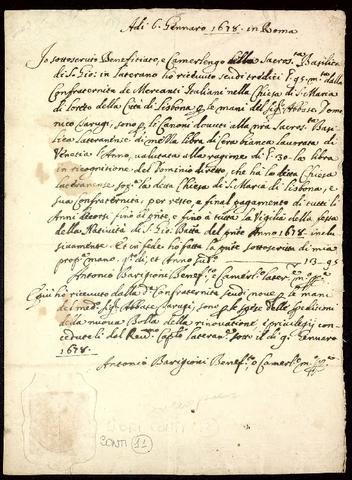 Adi 6. Gennaro 1678. in Roma
Io sottoscritto Benefitiato, e Camerlengo della Sacros.ta Basilica
di S. Gio: in Laterano hò ricevuto scudi tredici e 95 m.ta dalla
Confraternita de Mercanti Italiani nella Chiesa di S. Maria
di Loreto della Città di Lisbona p. le mani del Sig.r Abbate Dome
nico Sarugi, sono p. li Canoni dovuti alla n'ra Sacros.ta Basi
lica Lateranense di mezza libra di cera bianca lavorata di
Venetia l'Anno, valutata alla ragione di 30 la libra
in recognitione del Dominio diretto, che hà la detta Chiesa
Lateranense sop.a la detta Chiesa di S. Maria di Lisbona, e
sua Confraternita, per resto, e final pagamento di tutti li
Anni decorsi sino al p'nte, e sino à tutta la Vigilia della festa
della Natività di S. Gio. Batta del p'nte Anno 1678. in
clusivamente. Et in fede hò fatta la p'nte sottoscritta di mia
propria mano q.to dì, et Anno sud.o 13-95
Antonio Barigioni Benef.to Camerl.o Later.se m.o pp.a
E più hò ricevuto dalla d.a Confraternita scudi nove p. le mani
del med.o Sig.r Abbate Sarugi, sono p. le spese della speditione
della nuova Bolla della rinovatione, e privilegij con
cedute li dal Rev.mo Capitolo Lateran.se sotto il dì p.o Gennaro
1678.
Antonio Barigioni Benef.to e Camerl.o m.o pp.a
CONTI
11